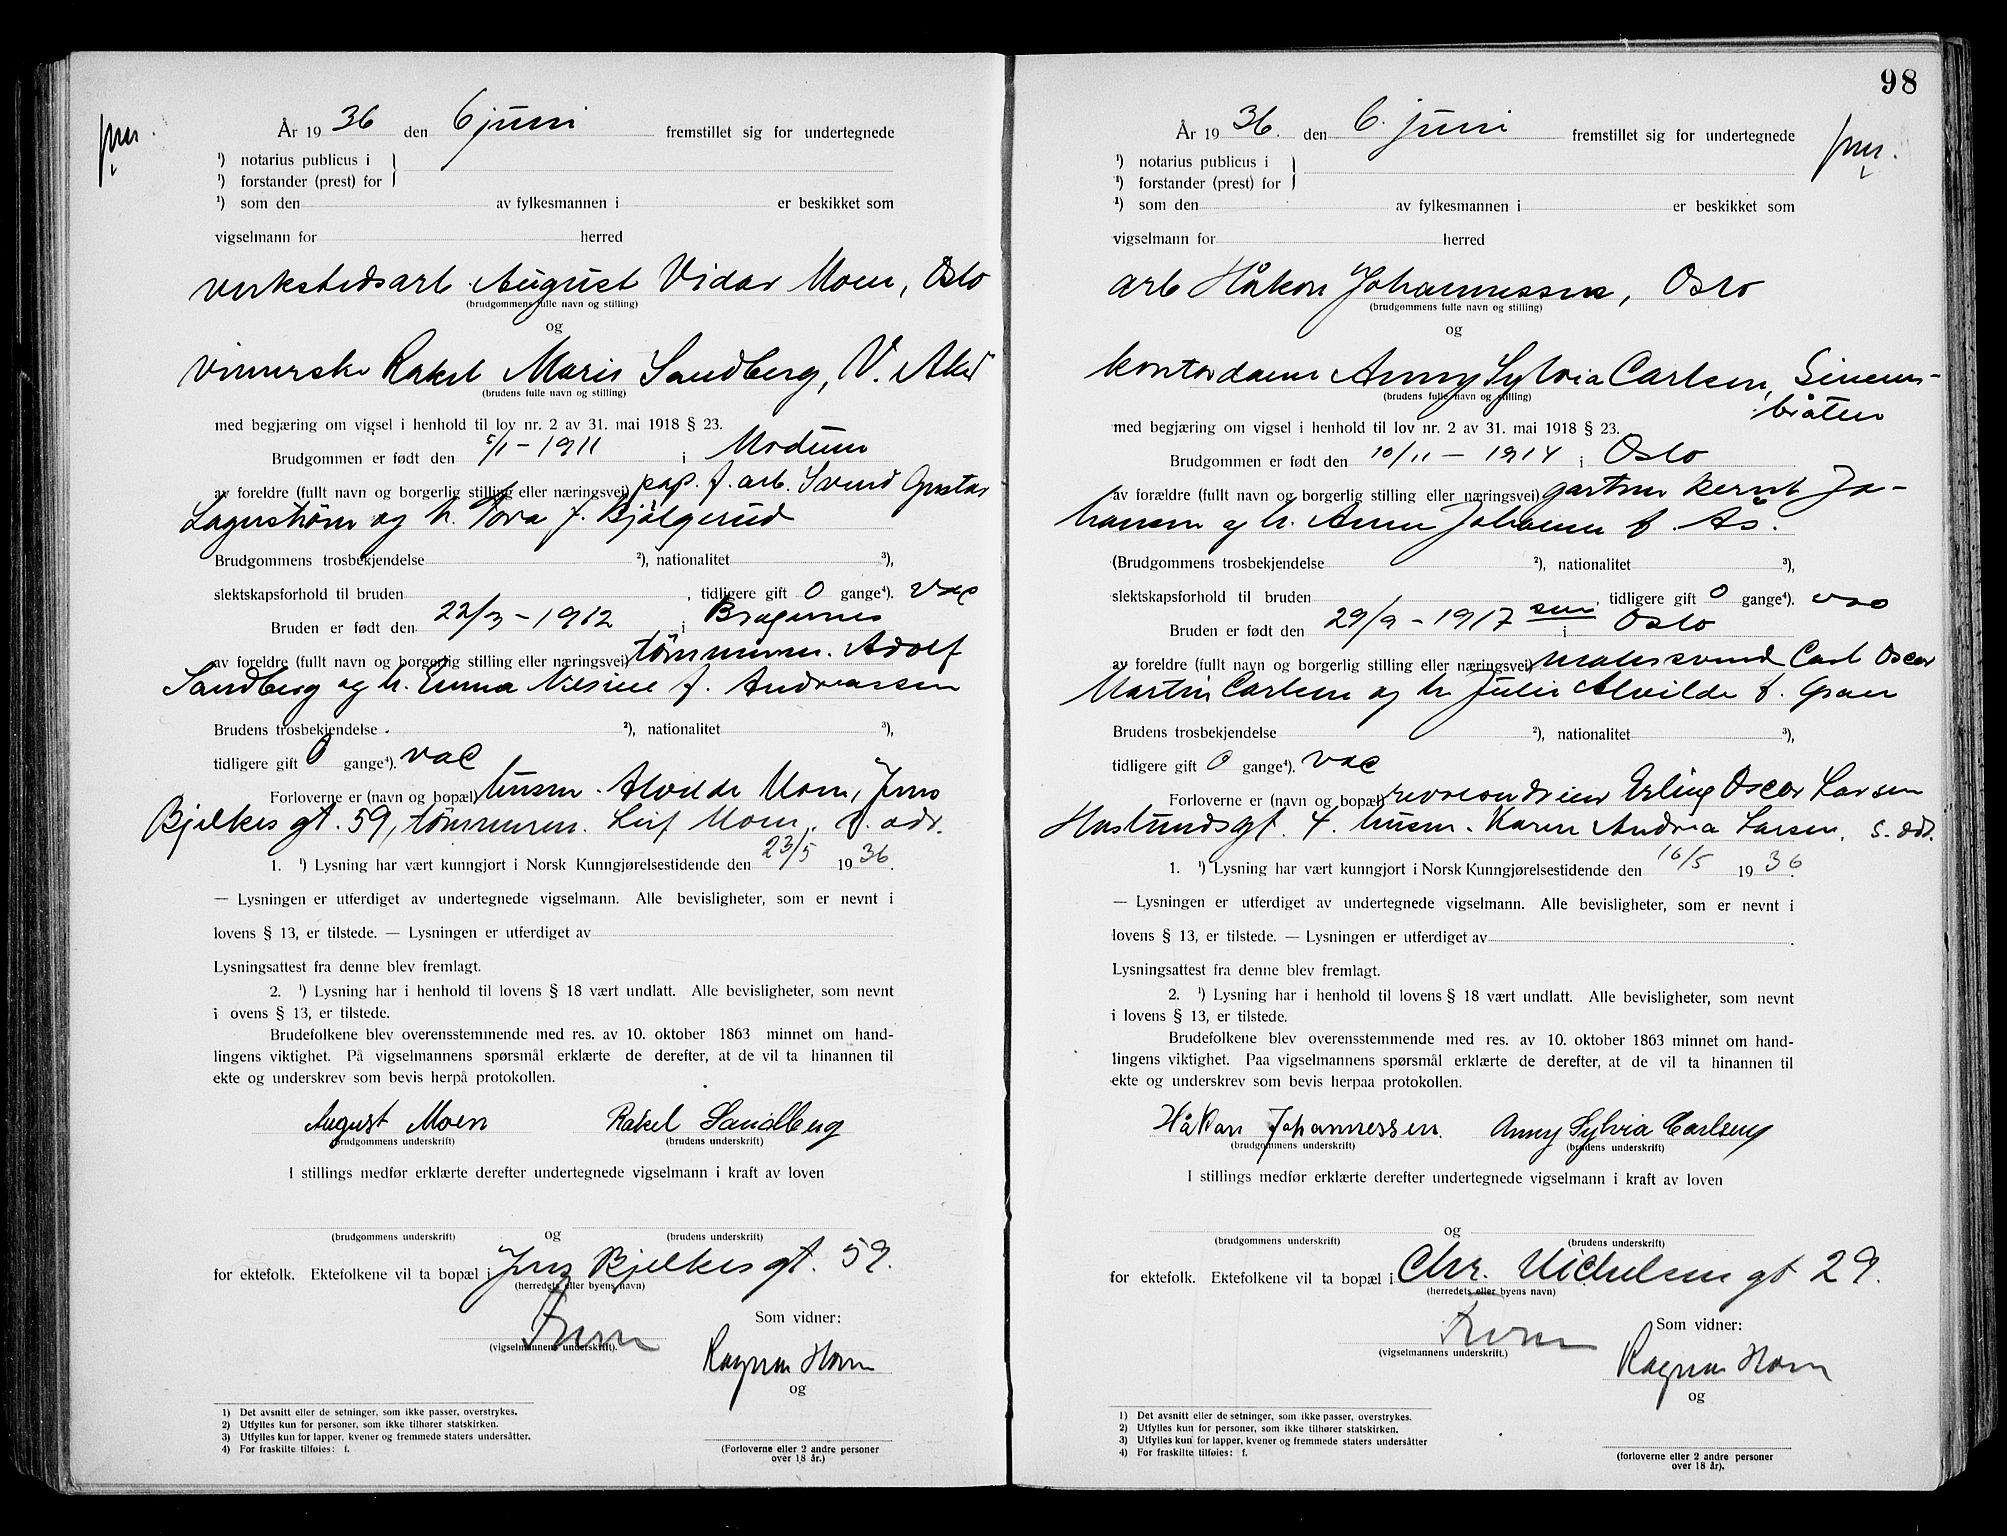 År 1936 den 6 juni fremstillet sig for undertegnede
¹) notarius publicus i
¹) forstander (prest) for
¹) som den av fylkesmannen i er beskikket som
vigselmann for herred
verkstedsarb August Vidar Moen, Oslo
(brudgommens fulle navn og stilling)
og
Rakel Marie Sandberg, V. Aker
(brudens fulle navn og stilling)
med begjæring om vigsel i henhold til lov nr. 2 av 31. mai 1918 § 23.
Brudgommen er født den 5/1 - 1911 i Modum
av foreldre (fullt navn og borgerlig stilling eller næringsvei) pap. f. arb. Svend Gustav
Lagerstrøm og h. Tora f. Bjølgerud
Brudgommens trosbekjendelse ²), nationalitet ³),
slektskapsforhold til bruden , tidligere gift 0 gange⁴). vac
Bruden er født den 22/3 - 1912 i Bragernes
av foreldre (fullt navn og borgerlig stilling eller næringsvei) tømmerm. Adolf
Sandberg og h. Emma Nilsine f. Andreassen
Brudens trosbekjendelse ²), nationalitet ³),
tidligere gift 0 gange⁴). vac
Forloverne er (navn og bopæl) husm. Alvilde Moen, Jens
Bjelkes gt. 59, tømmerm. Leif Moen, s. adr.
1. ¹) Lysning har vært kunngjort i Norsk Kunngjørelsestidende den 23/5 1936.
— Lysningen er utferdiget av undertegnede vigselmann. Alle bevisligheter, som er nevnt i
lovens § 13, er tilstede. — Lysningen er utferdiget av
Lysningsattest fra denne blev fremlagt.
2. ¹) Lysning har i henhold til lovens § 18 vært undlatt. Alle bevisligheter, som nevnt
i ovens § 13, er tilstede.
Brudefolkene blev overensstemmende med res. av 10. oktober 1863 minnet om hand-
lingens viktighet. På vigselmannens spørsmål erklærte de derefter, at de vil ta hinannen til
ekte og underskrev som bevis herpå protokollen.
August Moen Rakel Sandberg
(brudgommens underskrift) (brudens underskrift)
I stillings medfør erklærte derefter undertegnede vigselmann i kraft av loven
og
(brudgommens underskrift) (brudens underskrift)
for ektefolk. Ektefolkene vil ta bopæl i Jens Bjelkes gt. 59.
(herredets eller byens navn)
Som vidner:
(vigselmannens underskrift).
Ragna Horn
og
1) Det avsnitt eller de setninger, som ikke passer, overstrykes.
2) Utfylles kun for personer, som ikke tilhører statskirken.
3) Utfylles kun for lapper, kvener og fremmede staters undersåtter.
4) For fraskilte tilføies: f.
(Forloverne eller 2 andre personer
over 18 år.)
98
År 1936. den 6. juni fremstillet sig for undertegnede
¹) notarius publicus i
¹) forstander (prest) for
¹) som den av fylkesmannen i er beskikket som
vigselmann for herred
arb Håkon Johannessen, Oslo
(brudgommens fulle navn og stilling)
og
kontordame Anny Sylvia Carlsen, Simens-
bråten
(brudens fulle navn og stilling)
med begjæring om vigsel i henhold til lov nr. 2 av 31. mai 1918 § 23.
Brudgommen er født den 10/11 - 1914 i Oslo
av forældre (fullt navn og borgerlig stilling eller næringsvei) gartner Bernt Jo-
hansen og h. Anna Johanne f. Ås.
(Brudgommens trosbekjendelse ²), nationalitet ³),
slektskapsforhold til bruden , tidligere gift 0 gange⁴). vac
Bruden er født den 29/9 - 1917 i Oslo
av foreldre (fullt navn og borgerlig stilling eller næringsvei) malersvend Carl Oscar
Martin Carlsen og h. Julie Alvilde f. Gran
Brudens trosbekjendelse ²), nationalitet ³),
tidligere gift 0 gange⁴). vac
Forloverne er (navn og bopæl) Erling Oscar Larsen
Haslundsgt. 4. husm. Karen Andrea Larsen, s. adr.
1. ¹) Lysning har vært kunngjort i Norsk Kunngjørelsestidende den 16/5 1936.
— Lysningen er utferdiget av undertegnede vigselmann. Alle bevisligheter, som er nevnt i
lovens § 13, er tilstede. — Lysningen er utferdiget av
Lysningsattest fra denne blev fremlagt.
2. ¹) Lysning har i henhold til lovens § 18 vært undlatt. Alle bevisligheter, som nevnt
i lovens § 13, er tilstede.
Brudefolkene blev overensstemmende med res. av 10. oktober 1863 minnet om hand-
lingens viktighet. Paa vigselmannens spørsmål erklærte de derefter, at de vil ta hinannen til
ekte og underskrev som bevis herpaa protokollen.
Håkon Johannessen. Anny Sylvia Carlsen
(brudgommens underskrift) (brudens underskrift)
I stillings medfør erklærte derefter undertegnede vigselmann i kraft av loven
og
(brudgommens underskrift) (brudens underskrift)
for ektefolk. Ektefolkene vil ta bopæl i Chr. Michelsens gt 29.
(herredets eller byens navn)
Som vidner:
(vigselmannens underskrift.)
Ragna Horn
og
1) Det avsnitt eller de setninger, som ikke passer, overstrykes.
2) Utfylles kun for personer, som ikke tilhører statskirken.
3) Utfylles kun for lapper, kvener og fremmede staters undersåtter
4) For fraskilte tilføies: f.
(forloverne eller 2 andre personer
over 18 år).